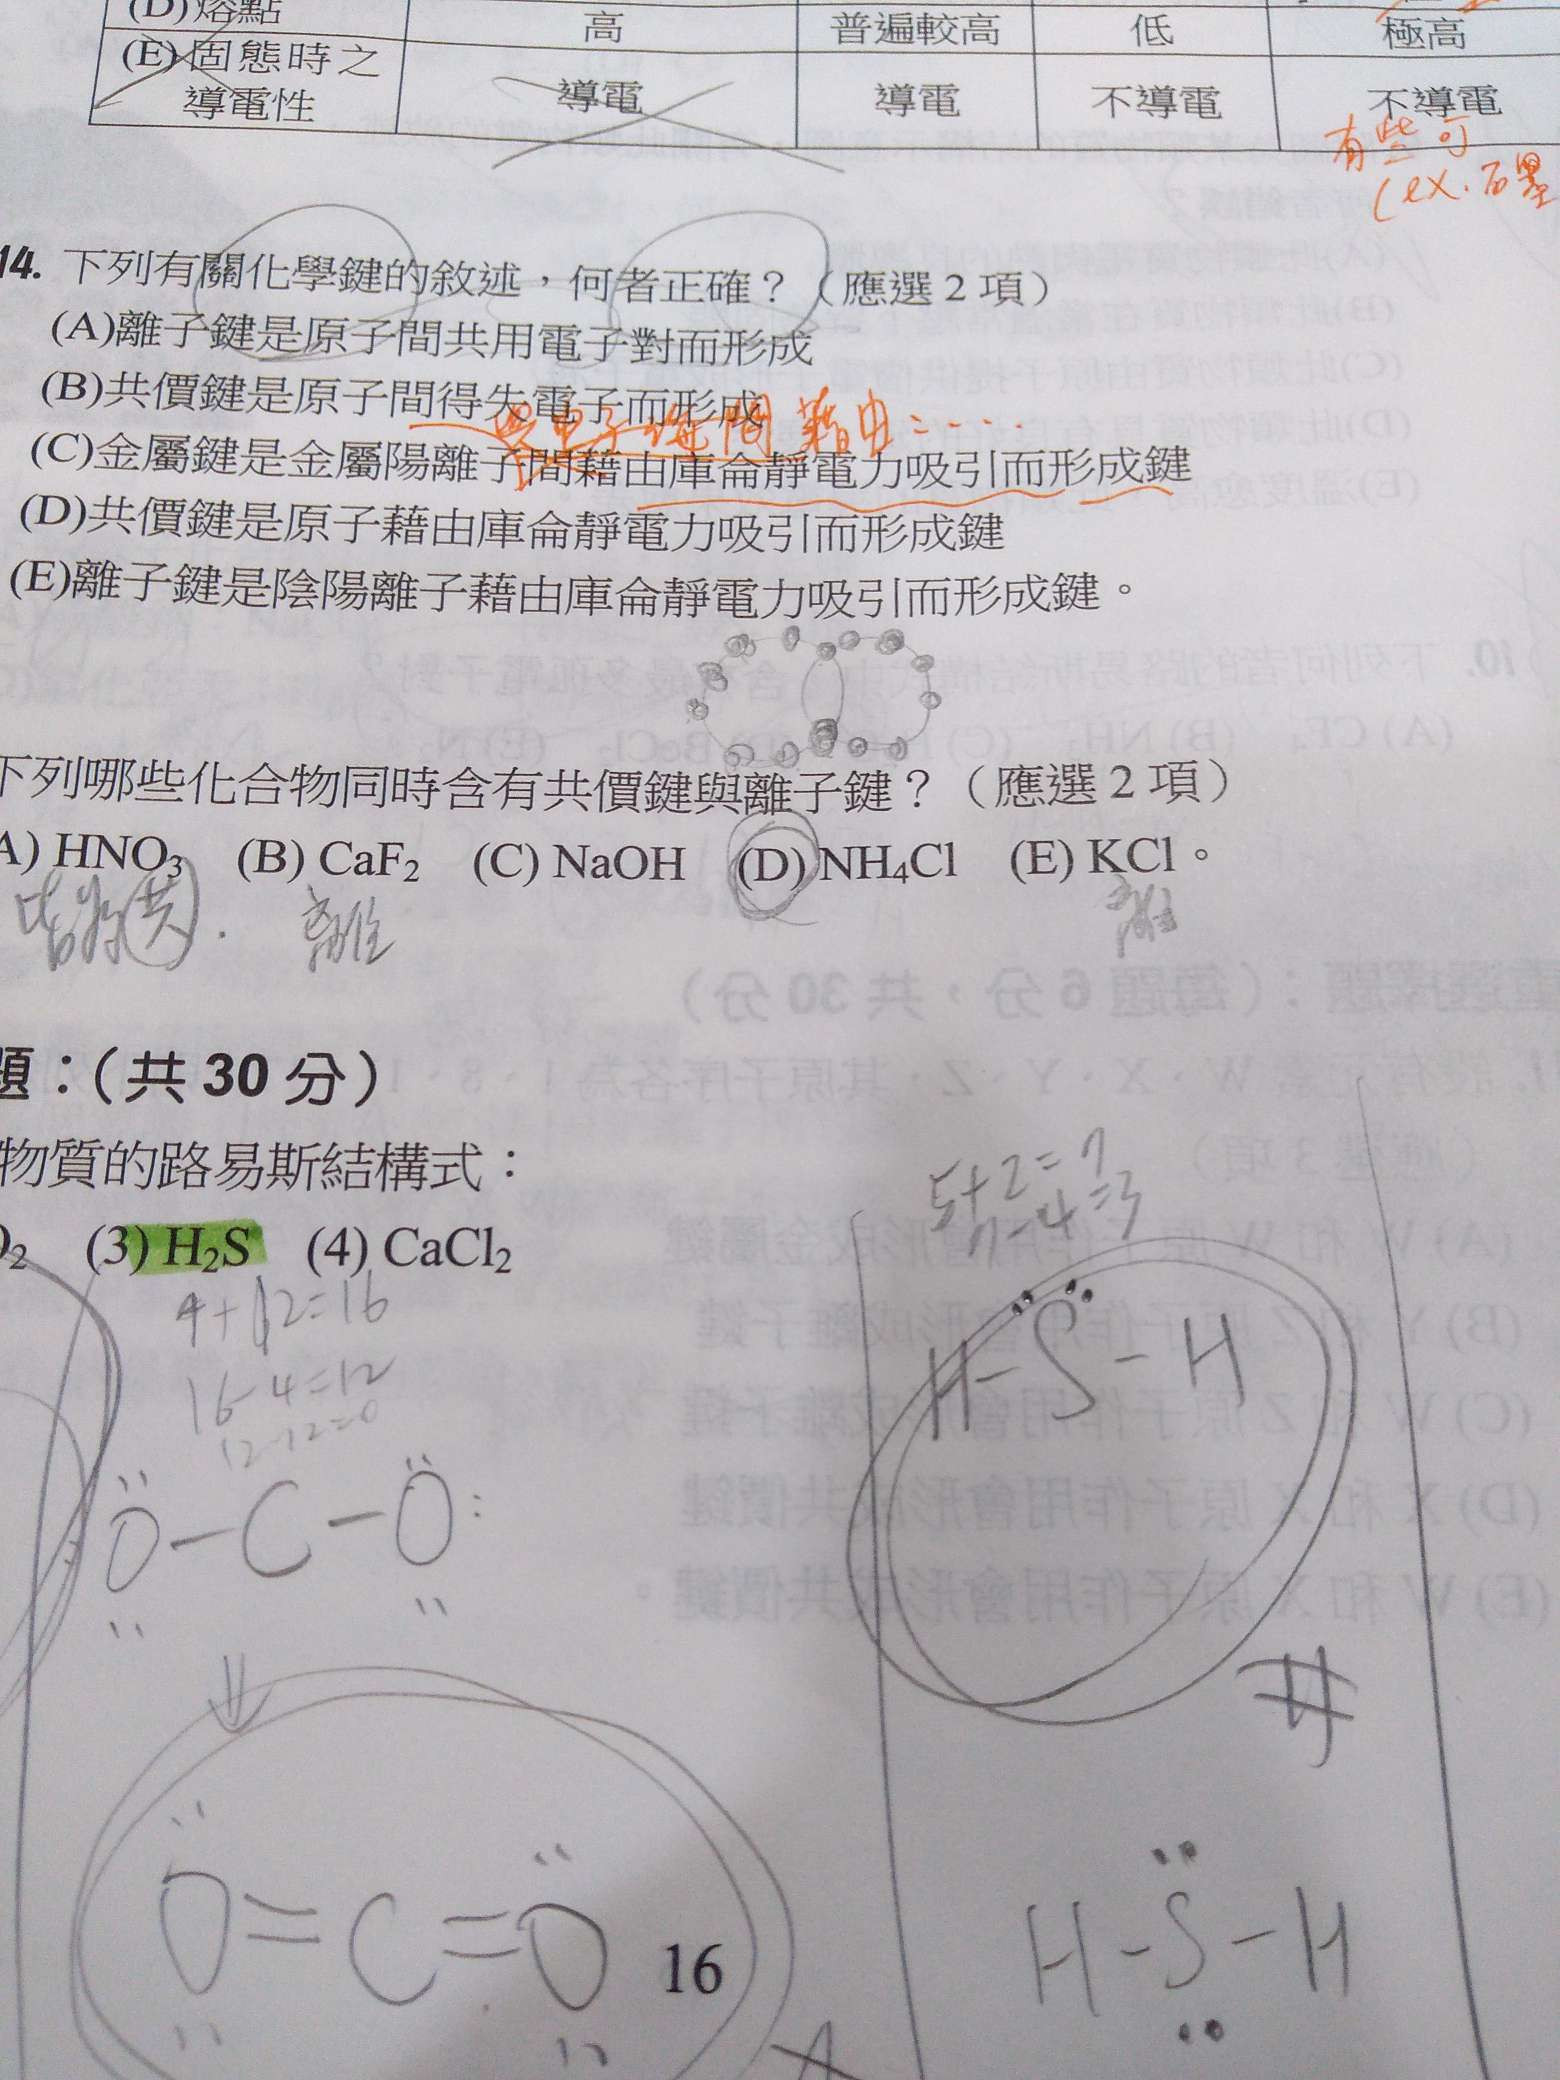 (D)熔點 高 普遍較高 低 極高
(E)固態時之導電性 導電 導電 不導電 不導電
有些可
(ex.石墨
14. 下列有關化學鍵的敘述,何者正確?(應選2項)
(A)離子鍵是原子間共用電子對而形成
(B)共價鍵是原子間得失電子而形成
間藉由：....
(C)金屬鍵是金屬陽離子間藉由庫侖靜電力吸引而形成鍵
(D)共價鍵是原子藉由庫侖靜電力吸引而形成鍵
(E)離子鍵是陰陽離子藉由庫侖靜電力吸引而形成鍵。
下列哪些化合物同時含有共價鍵與離子鍵?(應選2項)
A) HNO3 (B) CaF2 (C) NaOH (D) NH4Cl (E) KCl。
皆為共. 離 離
題:(共30分)
物質的路易斯結構式:
O2 (3) H2S (4) CaCl2
5+2=7
7-4=3
4+12=16
16-4=12
12-12=0
H-S-H
O-C-O
O=C=O
H-S-H
16